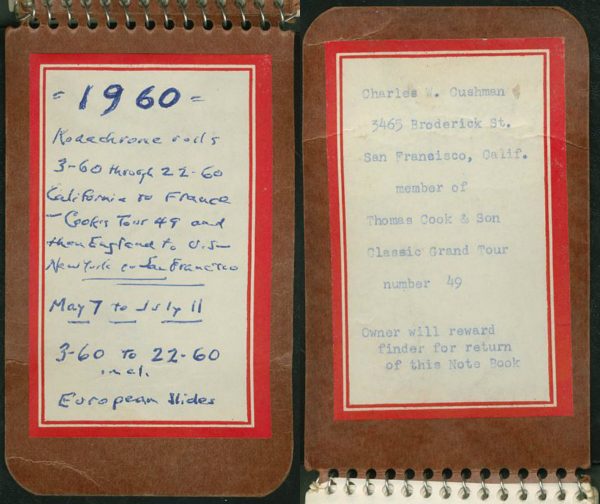 = 1960 =
Kodachrome rolls
3-60 through 22-60
California to France
- Cooks Tour 49 and
then England to U.S-
New York to San Francisco
May 7 to July 11
3-60 to 22-60
incl.
European Slides
Charles W. Cushman
3465 Broderick St.
San Francisco, Calif.
member of
Thomas Cook & Son
Classic Grand Tour
number 49
Owner will reward
finder for return
of this Note Book